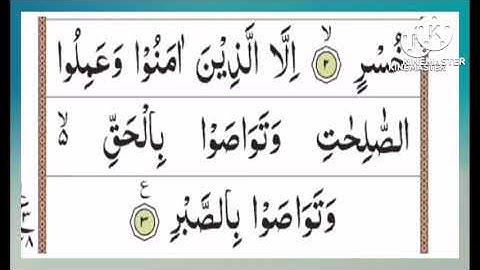 خُسْرٍ ۙ﴿۲﴾ اِلَّا الَّذِيْنَ اٰمَنُوْا وَعَمِلُوا
الصّٰلِحٰتِ وَتَوَاصَوْا بِالْحَقِّ ۙ۵
وَتَوَاصَوْا بِالصَّبْرِ ﴿۳﴾ ع
KINEMASTER
KINEMASTER